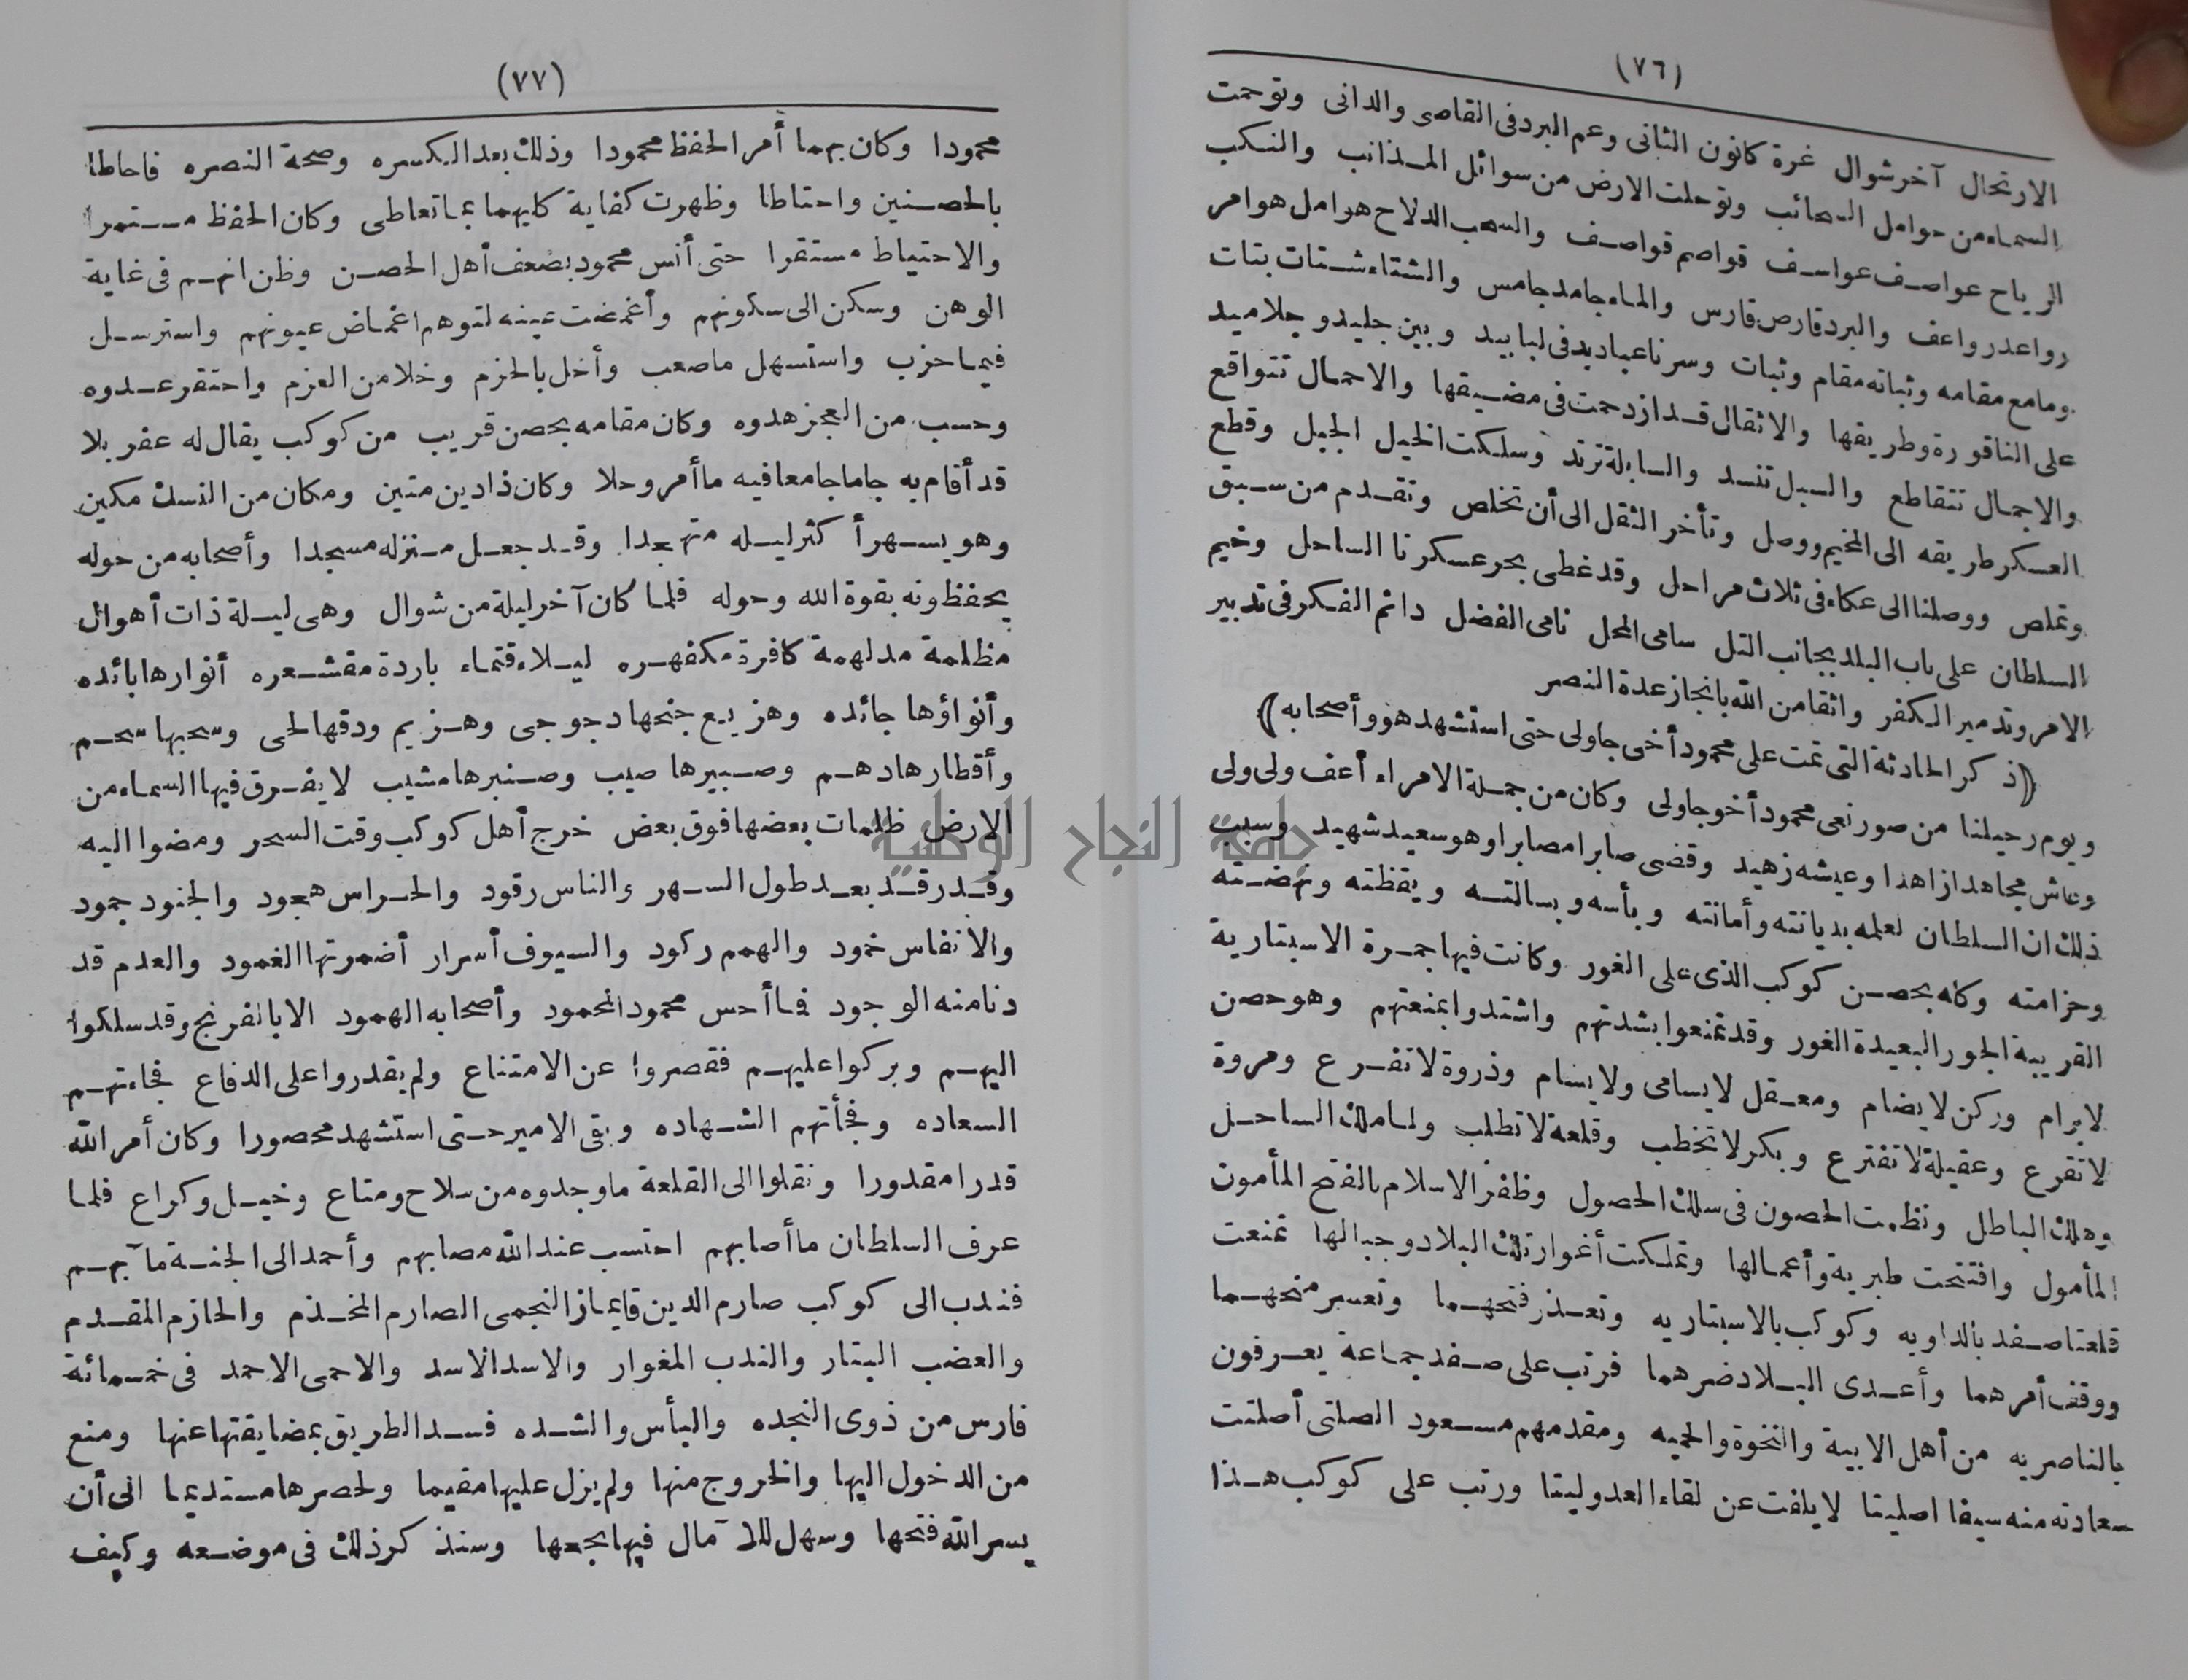 (٧٦)
الارتحال آخر شوال غرة كانون الثانى وعم البرد فى القاصى والدانى وتوحمت
السماء من حوامل السحائب وتوحلت الارض من سوائل المذانب والنكب
الرياح عواصف عواسف قواصم قواصف والسحب الدلاح هوامل هوامر
رواعد رواعف والبرد قارص قارس والماء جامد جامس والشتاء شتات بتات
وما مع مقامه وثباته مقام وثبات وسرنا عباديد فى لبابيد وبين جليد وجلاميد
على الناقورة وطريقها والاثقال قد ازدحمت فى مضيقها والاحمال تتواقع
والاجمال تتقاطع والسبل تنسد والسابلة ترتد وسلكت الخيل الجبل وقطع
العسكر طريقه الى المخيم ووصل وتأخر الثقل الى أن تخلص وتقدم من سبق
وتملص ووصلنا الى عكاء فى ثلاث مراحل وقد غطى بحر عسكرنا الساحل وخيم
السلطان على باب البلد بجانب التل سامى المحل نامى الفضل دائم الفكر فى تدبير
الامر وتدمير الكفر واثقا من الله بانجاز عدة النصر
(ذكر الحادثة التى تمت على محمود أخى جاولى حتى استشهد هو وأصحابه)
ويوم رحيلنا من صور نعى محمود أخو جاولى وكان من جملة الامراء أعف ولى ولى
وعاش مجاهدا زاهدا وعيشه زهيد وقضى صابرا مصابرا وهو سعيد شهيد وسبب
ذلك ان السلطان لعلمه بديانته وأمانته وبأسه وبسالته ويقظته ونهضته
وحزامته وكله بحصن كوكب الذى على الغور وكانت فيها جمرة الاسبتارية
القريبة الجور البعيدة الغور وقد تمنعوا بشدتهم واشتدوا بمنعتهم وهو حصن
لا يرام وركن لا يضام ومعقل لا يسامى ولا يسام وذروة لا تفرع ومروة
لا تقرع وعقيلة لا تفترع وبكر لا تخطب وقلعة لا تطلب ولما ملك الساحل
وهلك الباطل ونظمت الحصون فى سلك الحصول وظفر الاسلام بالفتح المأمون
المأمول وافتتحت طبرية وأعمالها وتملكت أغوار تلك البلاد وجبالها تمنعت
قلعتا صفد بالداويه وكوكب بالاسبتاريه وتعذر فتحهما وتعسر منحهما
ووقف أمرهما وأعدى البلاد ضرهما فرتب على صفد جماعة يعرفون
بالناصريه من أهل الابية والنخوة والحميه ومقدمهم مسعود الصلتى أصلتت
سعادته منه سيفا اصليتا لا يلفت عن لقاء العدو ليتا ورتب على كوكب هذا
(٧٧)
محمودا وكان بهما أمر الحفظ محمودا وذلك بعد الكسره وصحة النصره فاحاطا
بالحصنين واحتاطا وظهرت كفاية كليهما بما تعاطى وكان الحفظ مستمرا
والاحتياط مستقرا حتى أنس محمود بضعف أهل الحصن وظن انهم فى غاية
الوهن وسكن الى سكونهم وأغمضت عينه لتوهم اغماض عيونهم واسترسل
فيما حزب واستسهل ما صعب وأخل بالحزم وخلا من العزم واحتقر عدوه
وحسب من العجز هدوه وكان مقامه بحصن قريب من كوكب يقال له عفر بلا
قد أقام به جاما جامعا فيه ما أمر وحلا وكان ذا دين متين ومكان من النسك مكين
وهو يسهر أكثر ليله متهجدا وقد جعل منزله مسجدا وأصحابه من حوله
يحفظونه بقوة الله وحوله فلما كان آخر ليلة من شوال وهى ليلة ذات أهوال
مظلمة مدلهمة كافرة مكفهره ليلاء قتماء باردة مقشعره أنوارها بائده
وأنواؤها جائده وهزيع جنحها دجوجى وهزيم ودقها لحى وسحبها سحم
وأقطارها دهم وصبيرها صيب وصنبرها مشيب لا يفرق فيها السماء من
الارض ظلمات بعضها فوق بعض خرج أهل كوكب وقت السحر ومضوا اليه
وقد رقد بعد طول السهر والناس رقود والحراس هجود والجنود جمود
والانفاس خمود والهمم ركود والسيوف أسرار أضمرتها الغمود والعدم قد
دنا منه الوجود فما أحس محمود المحمود وأصحابه الهمود الا بالفرنج وقد سلكوا
اليهم وبركوا عليهم فقصروا عن الامتناع ولم يقدروا على الدفاع فجاءتهم
السعاده وفجأتهم الشهاده وبقى الامير حتى استشهد محصورا وكان أمر الله
قدرا مقدورا ونقلوا الى القلعة ما وجدوه من سلاح ومتاع وخيل وكراع فلما
عرف السلطان ما أصابهم احتسب عند الله مصابهم وأحمد الى الجنة مآبهم
فندب الى كوكب صارم الدين قايماز النجمى الصارم المخذم والحازم المقدم
والعضب البتار والندب المغوار والاسد الاسد والاحمى الاحمد فى خمسمائة
فارس من ذوى النجده والبأس والشده فسد الطريق بمضايقتها عنها ومنع
من الدخول اليها والخروج منها ولم يزل عليها مقيما ولحصرها مستديما الى أن
يسر الله فتحها وسهل للآمال فيها نجحها وسنذكر ذلك فى موضعه وكيف
جامعة النجاح الوطنية